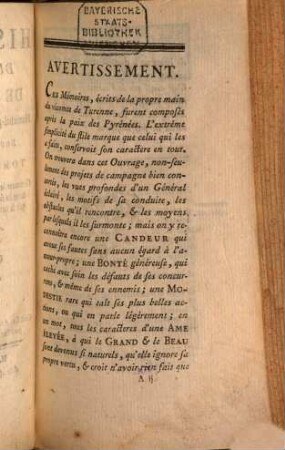 BAYERISCHE
STAATS-
BIBLIOTHEK
AVERTISSEMENT.
Ces Mémoires, écrits de la propre main
du vicomte de Turenne, furent composés
après la paix des Pyrénées. L'extrême
simplicité du stile marque que celui qui les
a fait, conservoit son caractere en tout.
On trouvera dans cet Ouvrage, non-seu-
lement des projets de campagne bien con-
certés, les vues profondes d'un Général
éclairé, les motifs de sa conduite, les
obstacles qu'il rencontre, & les moyens
par lesquels il les surmonte; mais on y re-
connoître encore une CANDEUR qui
avoue ses fautes sans aucun égard à l'a-
mour-propre; une BONTÉ généreuse, qui
cache avec soin les défauts de ses concur-
rens, & même de ses ennemis; une MO-
DESTIE rare qui tait ses plus belles ac-
tions, ou qui en parle légérement; en
un mot, tous les caracteres d'une AME
ÉLEVÉE, à qui le GRAND & le BEAU
sont devenus si naturels, qu'elle ignore sa
propre vertu, & croit n'avoir rien fait que
A ij